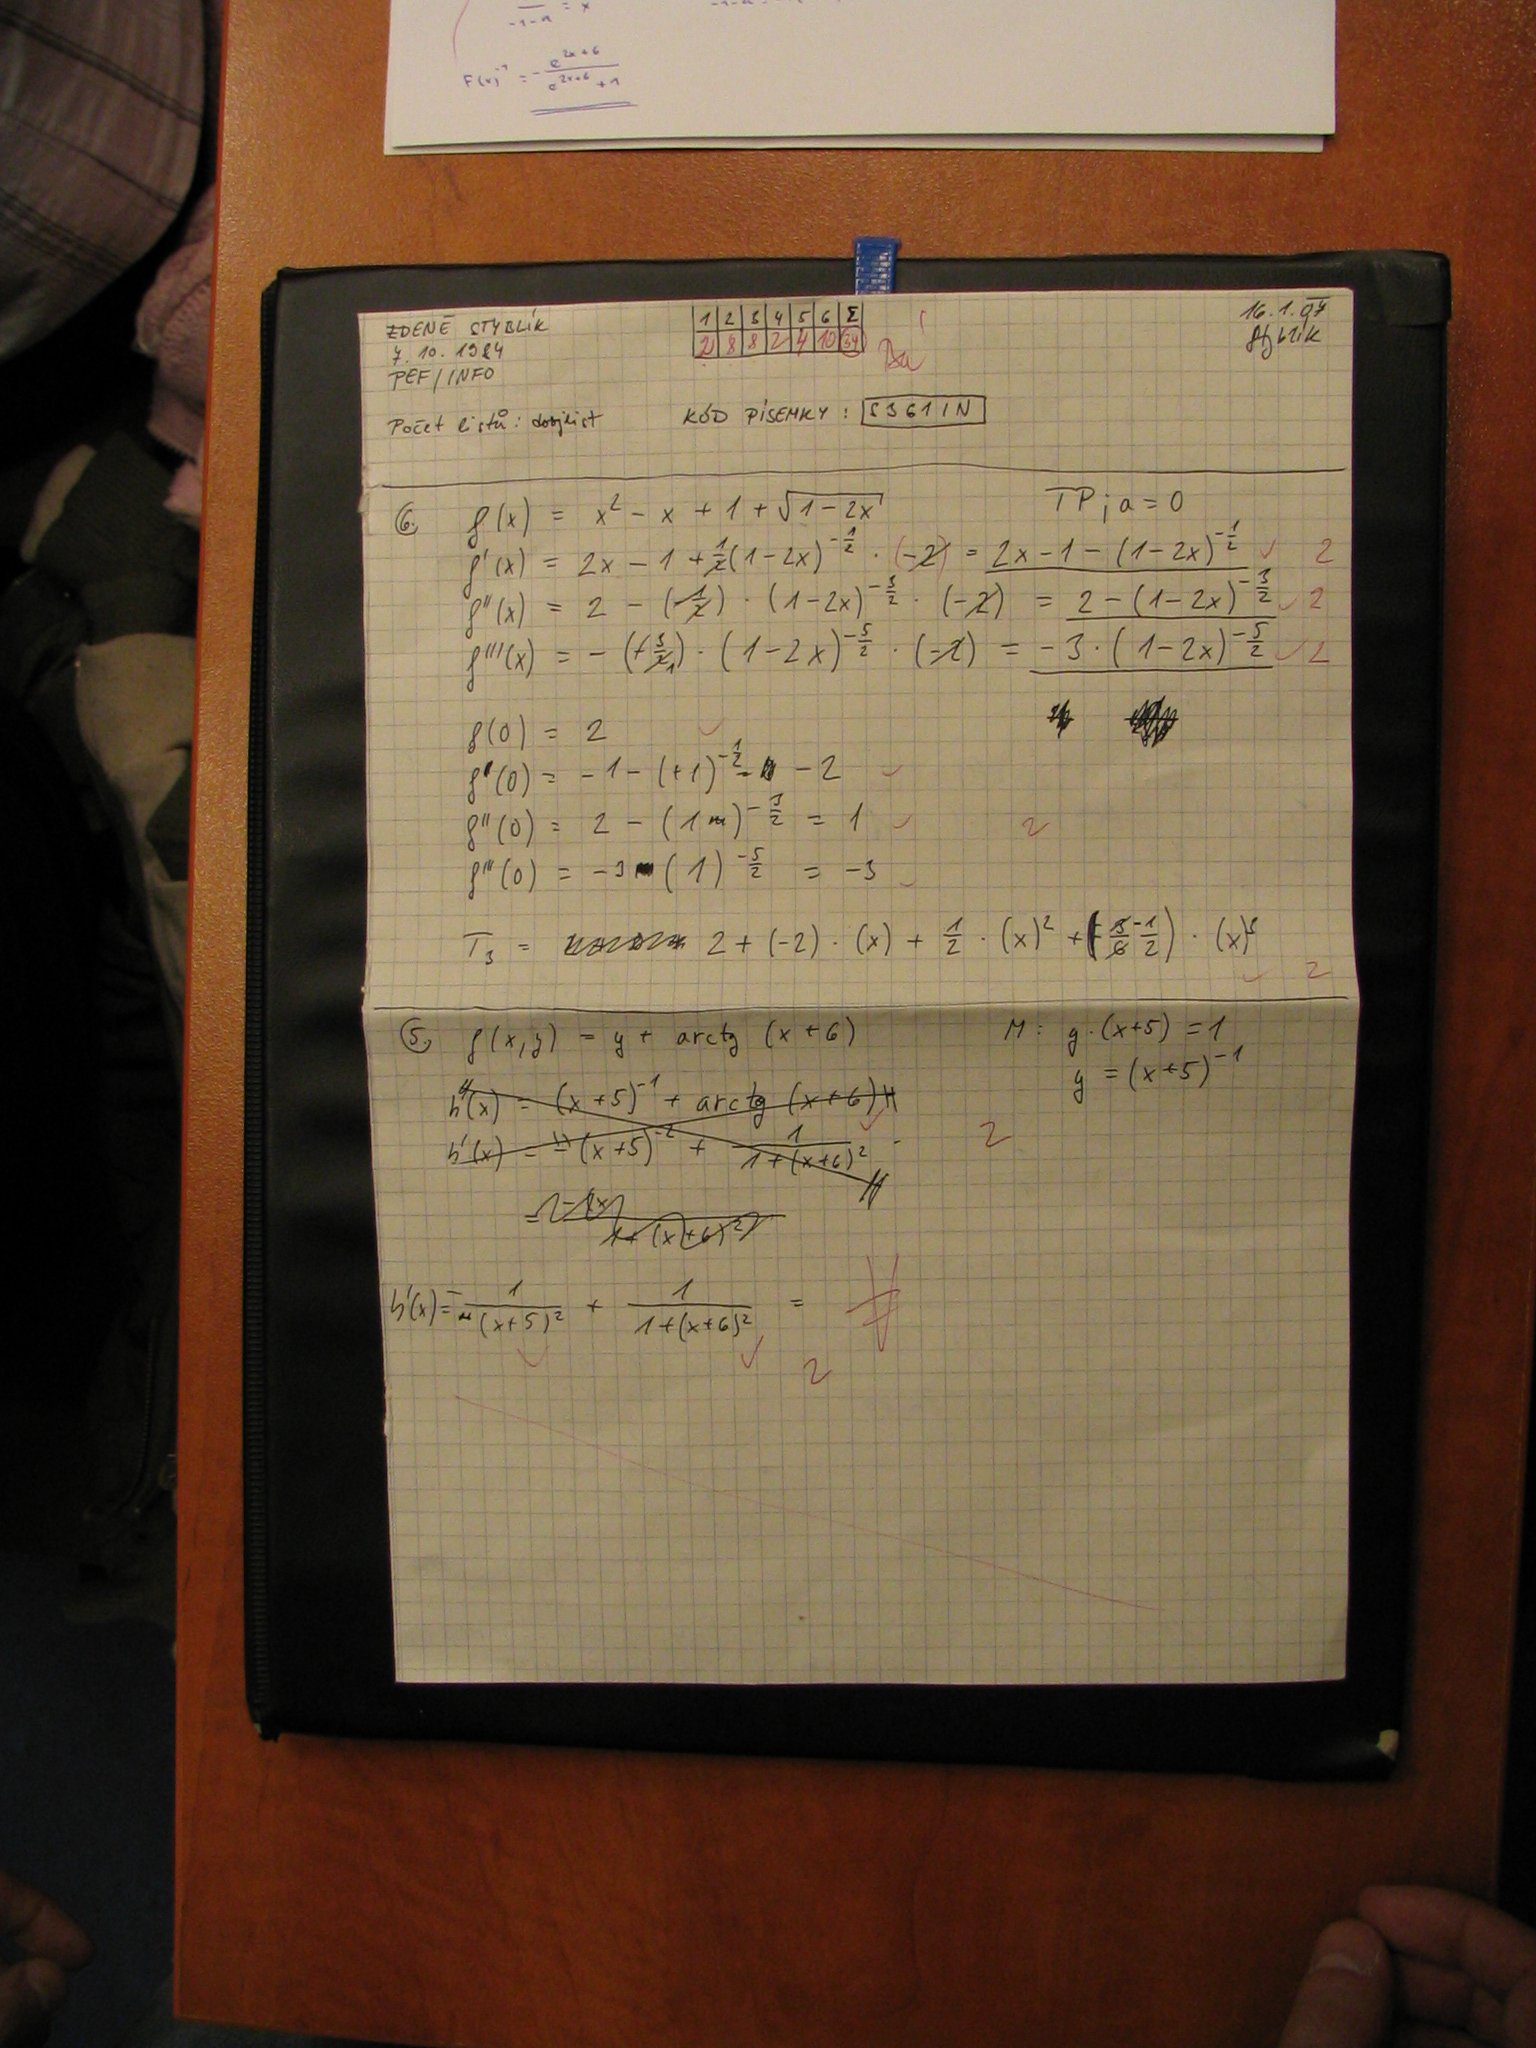 -1-x = x
F(x)⁻¹ = - e^(2x+6) / (e^(2x+6) + 1)
ZDENĚ STYBLÍK
7.10.1984
PEF/INFO
1 2 3 4 5 6 Σ
2 8 8 2 4 10 34
16.1.07
Styblík
Počet listů: dvojlist
KÓD PÍSEMKY: S361IN
6. f(x) = x² - x + 1 + √(1-2x) TP; a = 0
f'(x) = 2x - 1 + 1/2 (1-2x)^(-1/2) · (-2) = 2x - 1 - (1-2x)^(-1/2) ✓ 2
f''(x) = 2 - (-1/2) · (1-2x)^(-3/2) · (-2) = 2 - (1-2x)^(-3/2) ✓ 2
f'''(x) = - (+3/2) · (1-2x)^(-5/2) · (-2) = -3 · (1-2x)^(-5/2) ✓ 2
f(0) = 2 ✓
f'(0) = -1 - (+1)^(-1/2) = -2 ✓
f''(0) = 2 - (1)^(-3/2) = 1 ✓ 2
f'''(0) = -3 (1)^(-5/2) = -3 ✓
T₃ = 2 + (-2) · (x) + 1/2 · (x)² + (-3/6 -1/2) · (x)³ ✓ 2
5. f(x,y) = y + arctg (x+6) M: y·(x+5) = 1
y = (x+5)⁻¹
h(x) = (x+5)⁻¹ + arctg (x+6)
h'(x) = -(x+5)⁻² + 1/(1+(x+6)²) ✓ 2
h'(x) = - 1/(x+5)² + 1/(1+(x+6)²) =
✓ ✓ 2